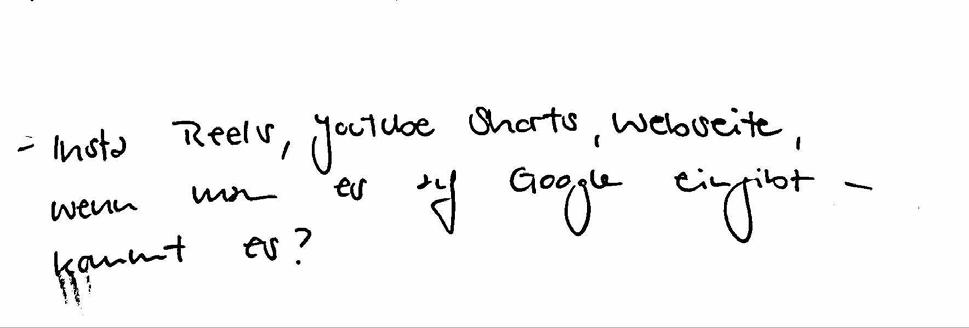 - Insta Reels, YouTube Shorts, Webseite,
wenn man es auf Google eingibt -
kommt es?